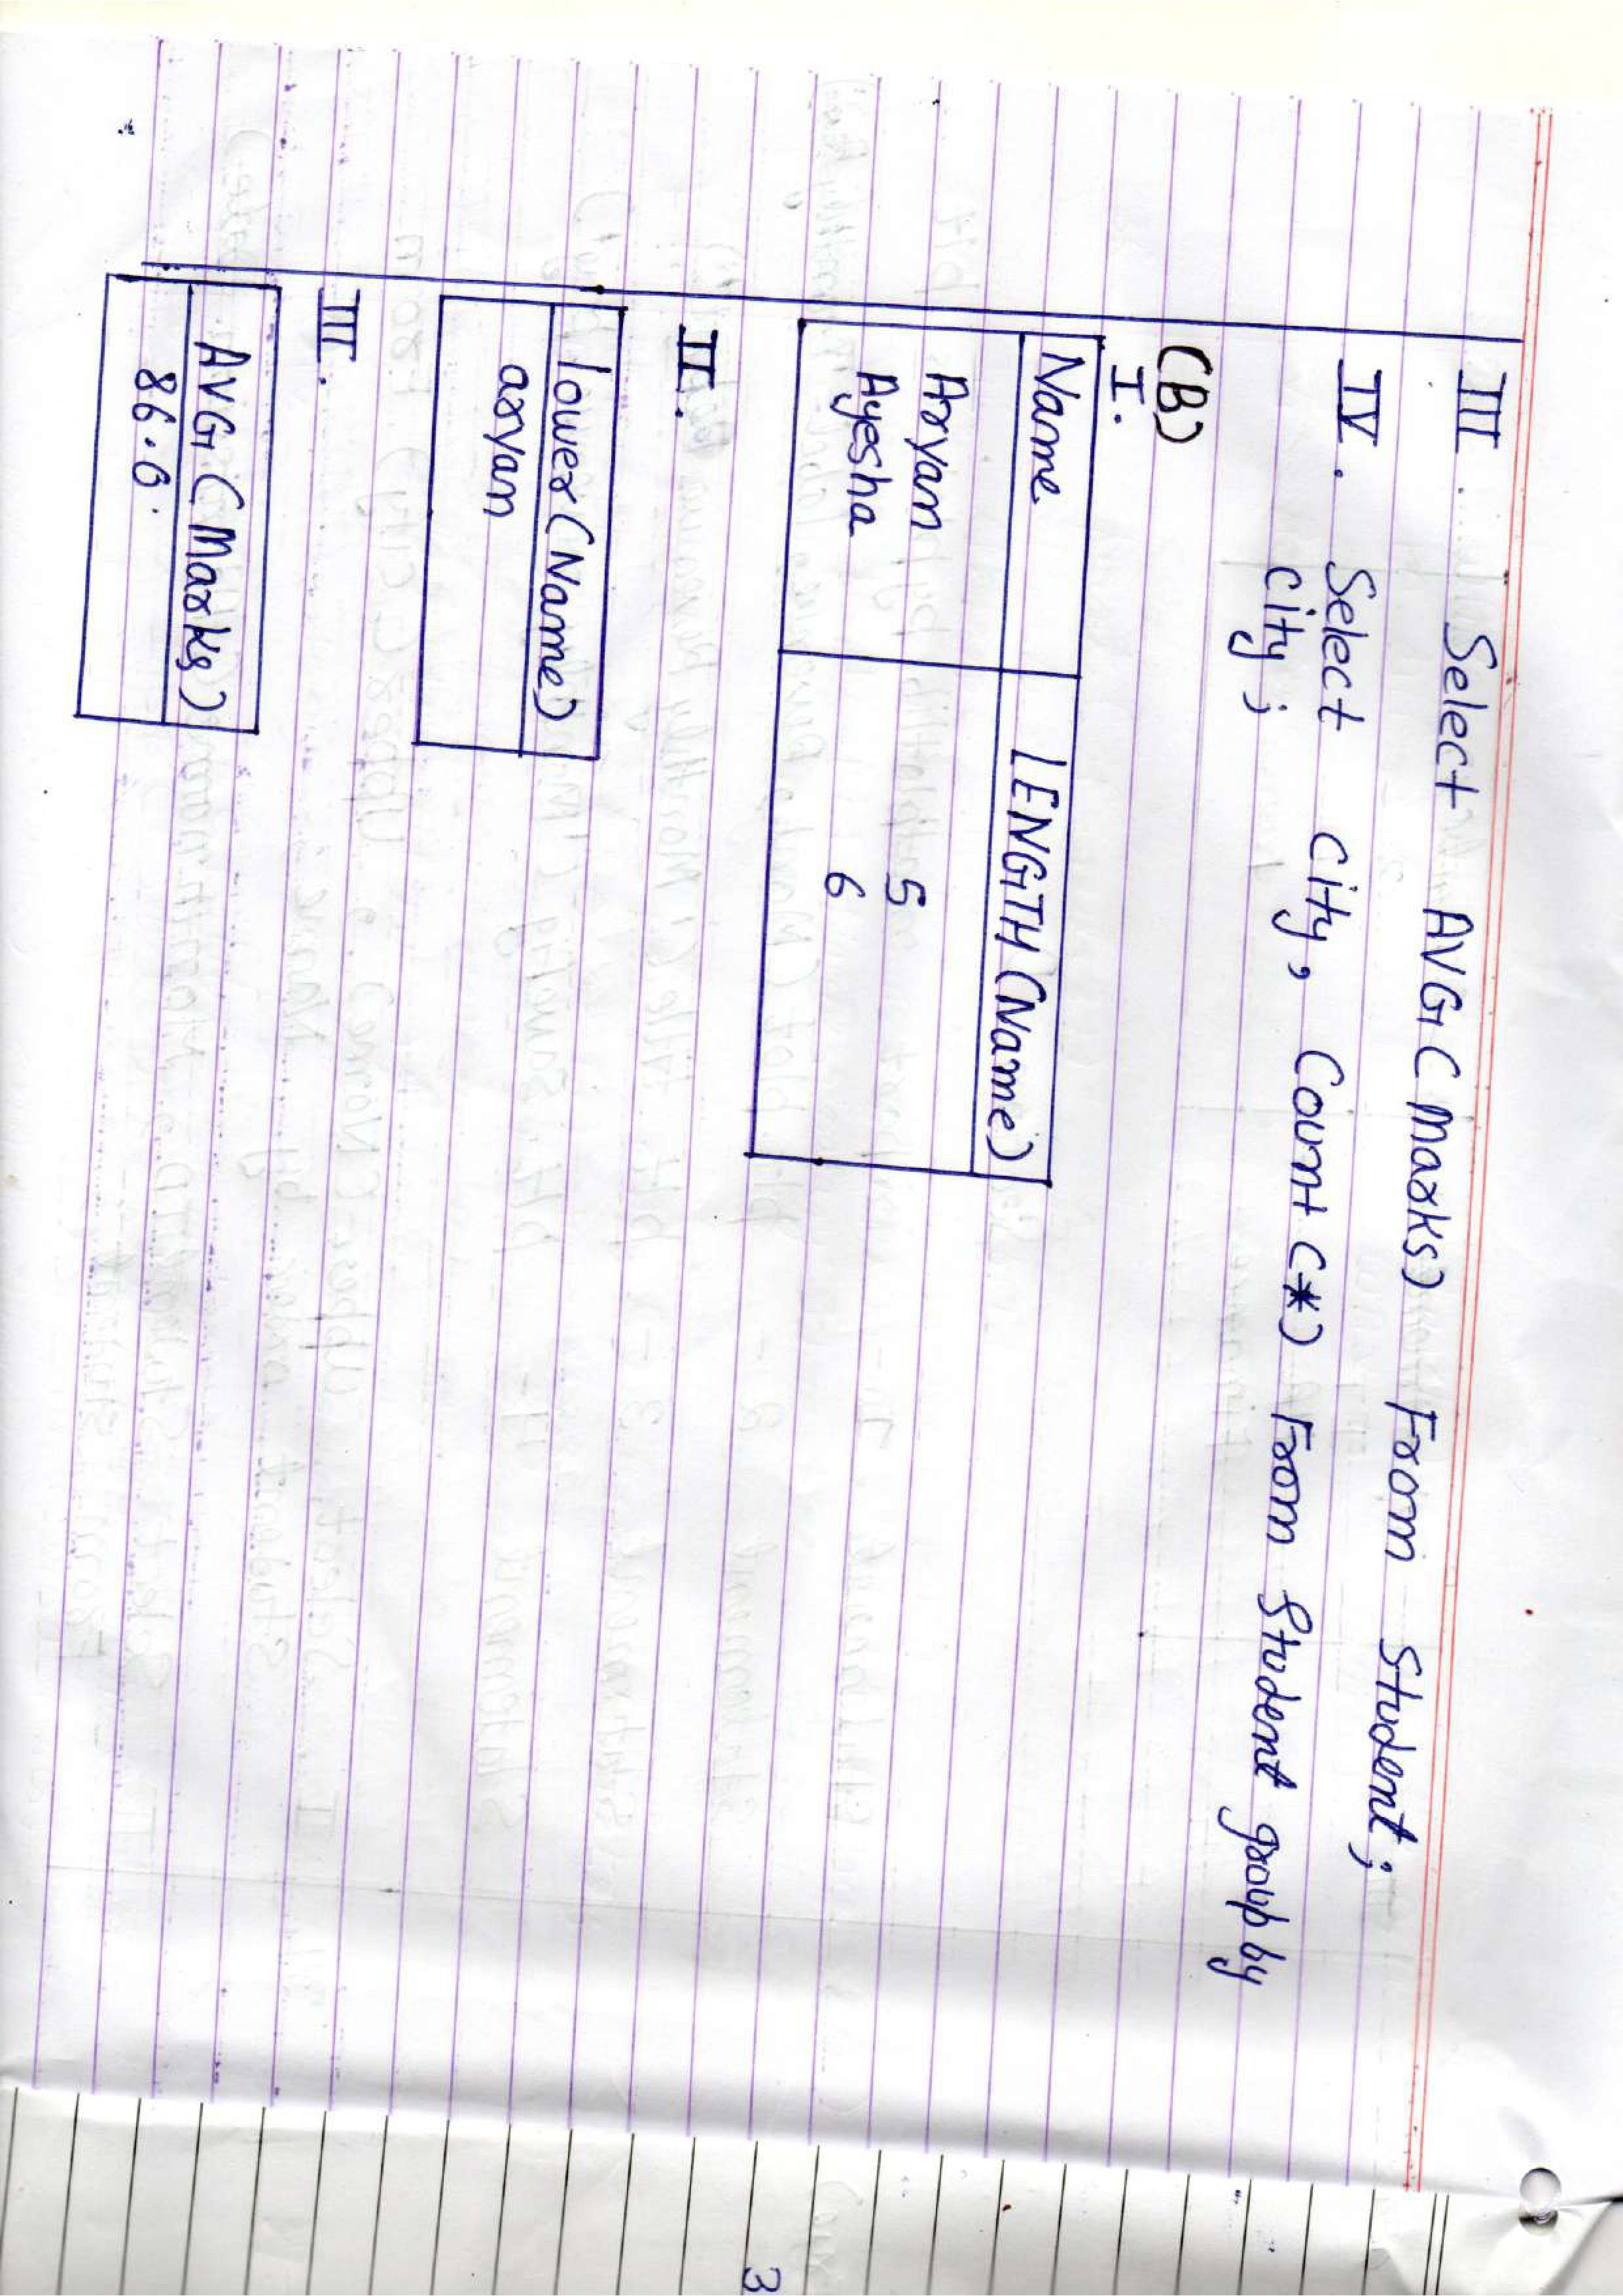 III Select AVG (Marks) From Student;
IV. Select City, Count (*) From Student group by
City;
(B)
I.
Name LENGTH (Name)
Aryan 5
Ayesha 6
II.
lower (Name)
aryan
III.
AVG (Marks)
86.0
3